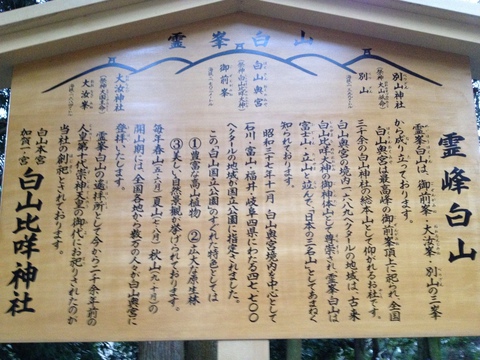 霊峯白山
別山神社
別山
白山奥宮
御前峯
大汝神社
大汝峯
霊峰白山
霊峯白山は、御前峯・大汝峯・別山の三峯
から成り立っております。
白山奥宮は最高峰の御前峯頂上に祀られ、全国
三千余の白山神社の総本山として仰がれるお社です。
白山奥宮の境内二六八九ヘクタールの地域は、古来
白山比咩大神の御神体山として尊崇され、霊峯白山は
富士山・立山と並んで、「日本の三名山」としてあまねく
知られております。
昭和三十七年十一月、白山奥宮境内を中心として
石川・富山・福井・岐阜四県にわたる四七、七〇〇
ヘクタールの地域が国立公園に指定されました。
この、「白山国立公園」のすぐれた特色としては
①豊富な高山植物 ②広大な原生林
③美しい自然景観が挙げられております。
毎年春山(五、六月)夏山(七、八月)秋山(九、十月)の
開山期には、全国各地から幾多の人々が白山奥宮に
登拝いたします。
霊峯白山の遥拝所として今から二千余年前の
人皇第十代崇神天皇の御代にお祀りされたのが
当社の創祀とされております。
白山本宮
加賀一宮
白山比咩神社